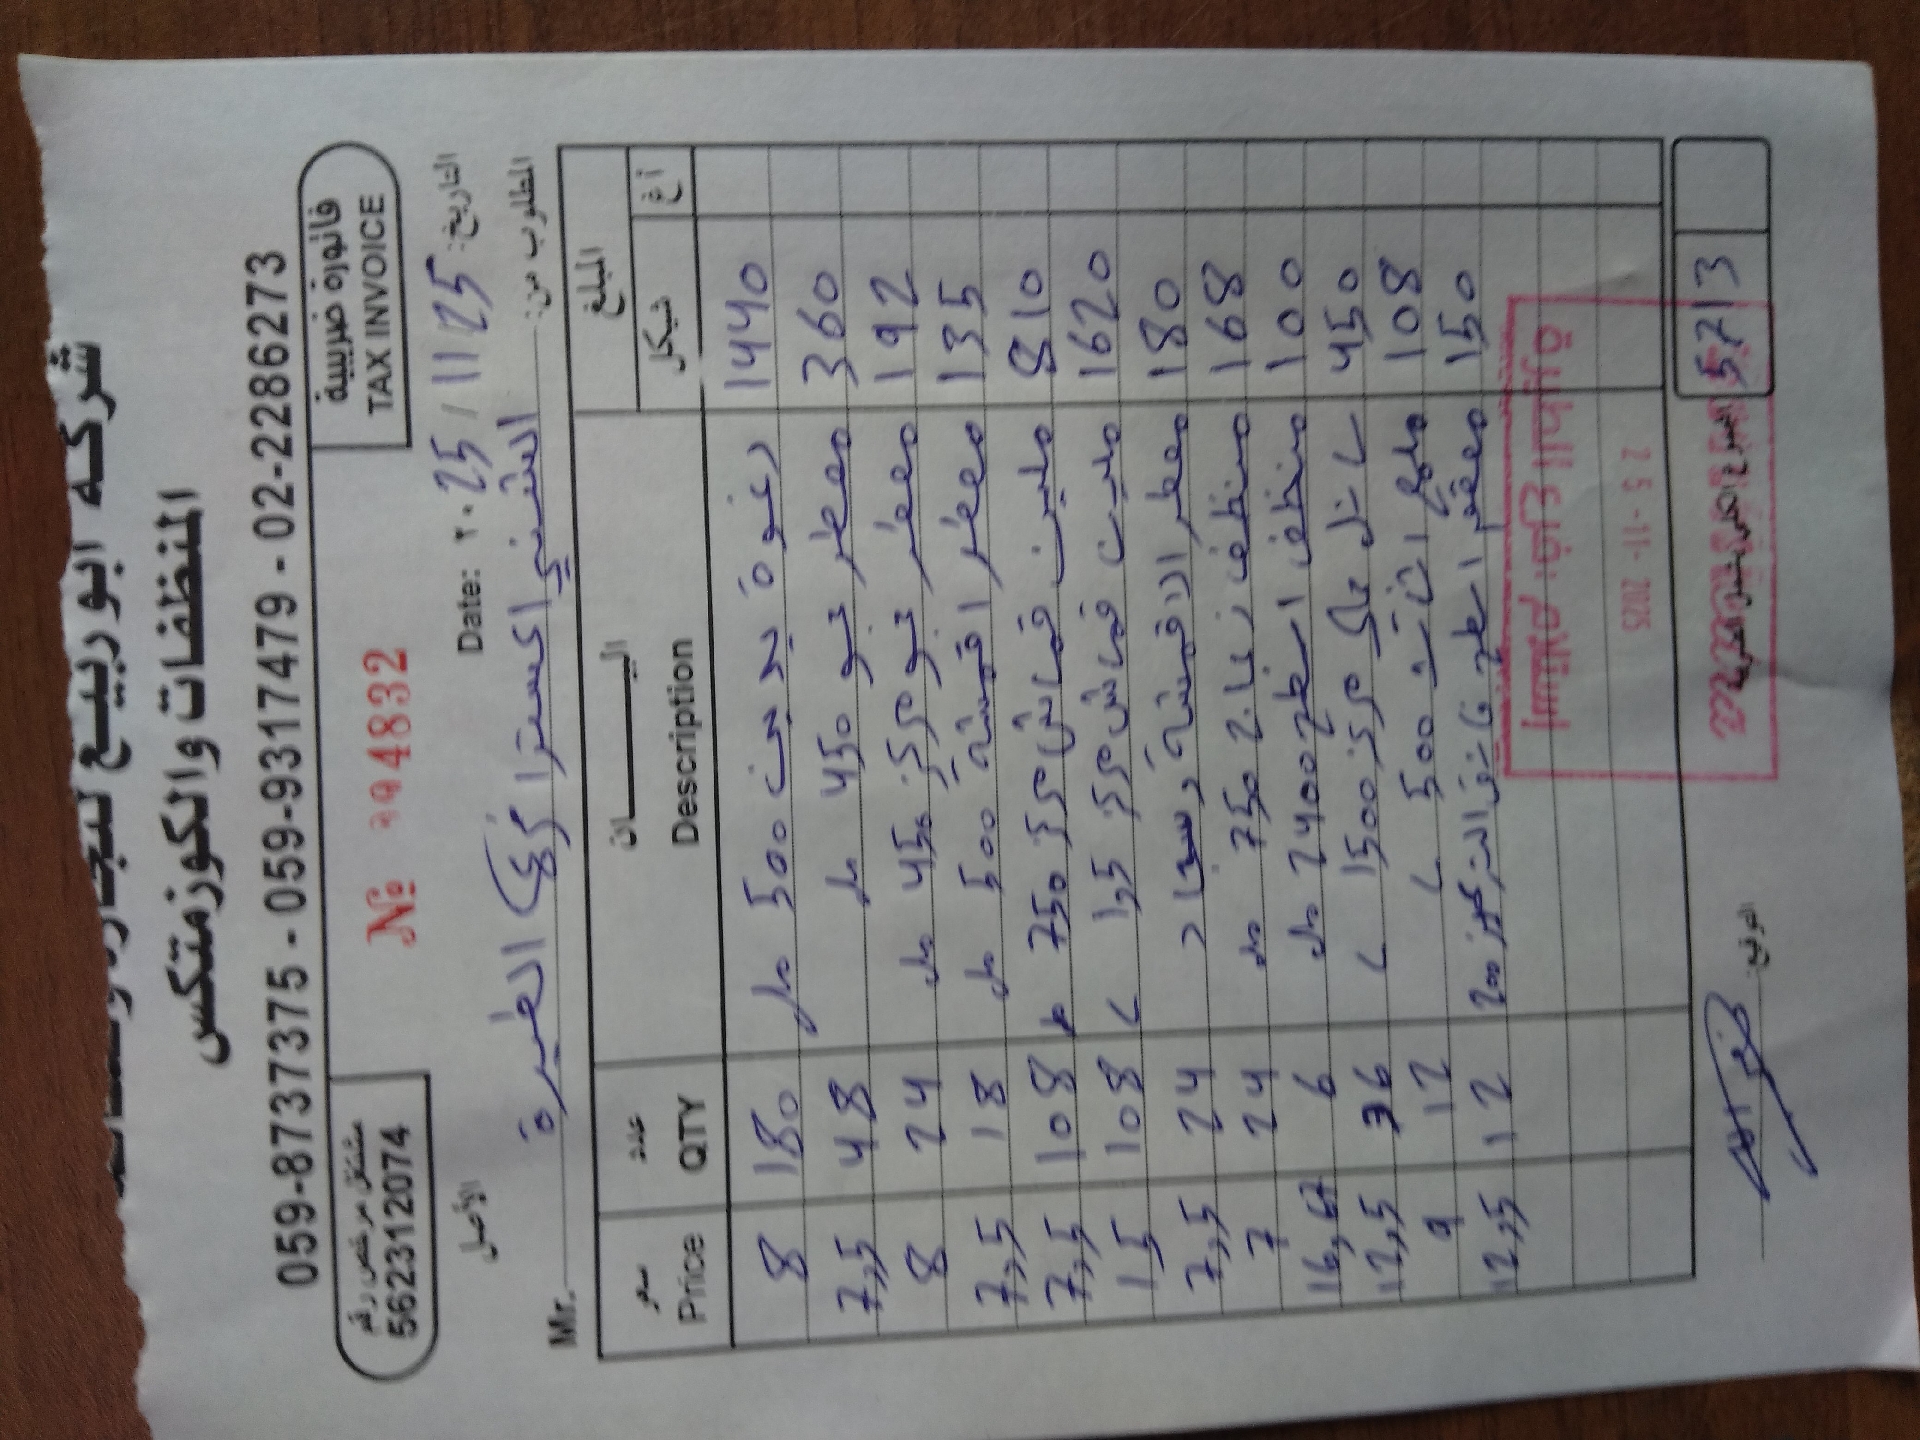 شركة ابو ربيع للتجارة
المنظفات والكوزمتكس
059-8737375 - 059-9317479 - 02-2286273
مشتغل مرخص رقم
562312074
№ 994832
فاتورة ضريبية
TAX INVOICE
الأصل
Date: ٢٠25 / 11 / 25 التاريخ:
Mr. الشني اكسترا الطيرة المطلوب من:
سعر عدد البيـــــان المبلغ
Price QTY Description شيكل اغ
8 180 رغوة يدين 500 مل 1440
7,5 48 معطر جو 450 مل 360
8 24 معطر جو 450 مل 192
7,5 18 معطر اقمشة 500 مل 135
7,5 108 ملين قماش 750 مل 810
15 108 ملين قماش 1,5 ل 1620
7,5 24 معطر اقمشة وسجاد 180
7 24 منظف زجاج 750 مل 168
16,67 6 منظف اسطح 2400 مل 100
12,5 36 1500 ل 450
9 12 ملمع اثاث 500 ل 108
12,5 12 معقم اسطح 150
5713
إستلام فرع الطيرة
25 -11- 2025
التوقيع: